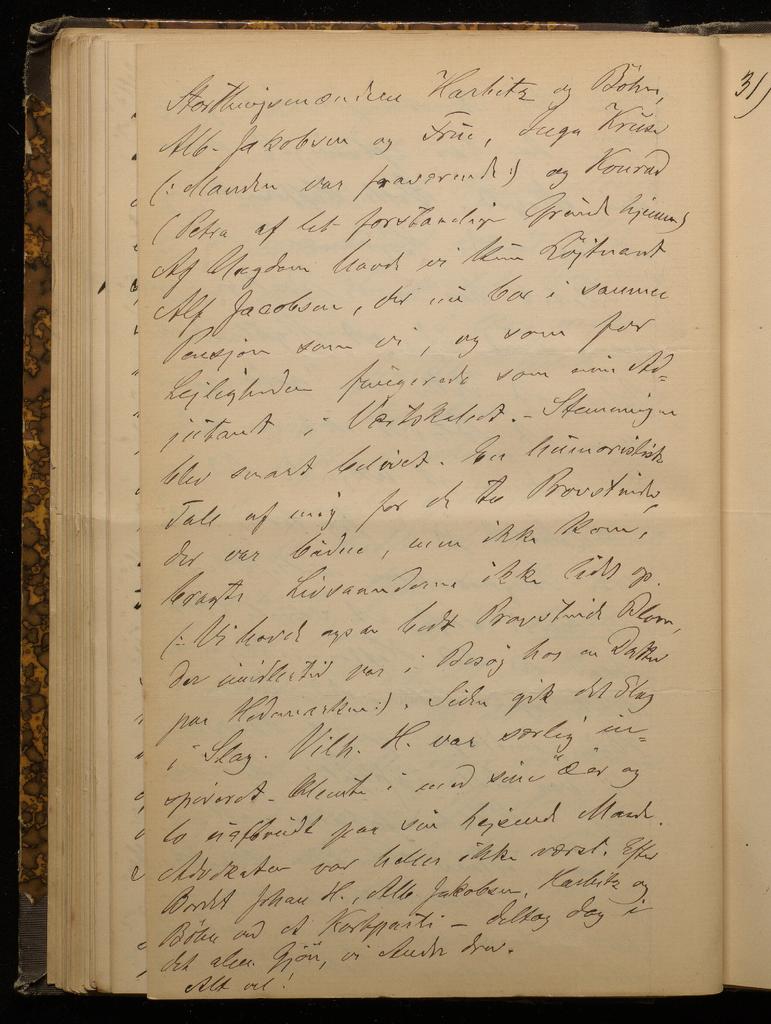 Storthingsmændene Harbitz og Böhn,
Alb. Jakobsen og Frue, Inga Kruse
(: Manden var fraværende :) og Konrad
(Petra af let forstaaelige Grunde hjemme)
Af Ungdom havde vi kun Löjtnant
Alf Jacobsen, der nu bor i samme
Pensjon som vi, og som for
Lejligheden fungerede som min Ad=
jutant i Værtskabet. - Stemningen
blev snart belivet. En humoristisk
Tale af mig for de to Provstinder,
der var budne, men ikke kom,
bragte Livsaanderne ikke lidt op.
(: Vi havde ogsaa bedt Provstinde Blom,
der imidlertid var i Besög hos en Datter
paa Hedemarken :). Siden gik det Slag
i Slag. Vilh. H. var særlig in=
spireret. Klemte i med sine æ'er og
lo uafbrudt paa sin hejsende Maade.
Advokaten var heller ikke værst. Efter
Bordet Johan H., Alb. Jakobsen, Harbitz og
Böhn ved et Kortparti - deltog dog i
det alm. Gjön, vi Andre drev.
Alt vel!
31)